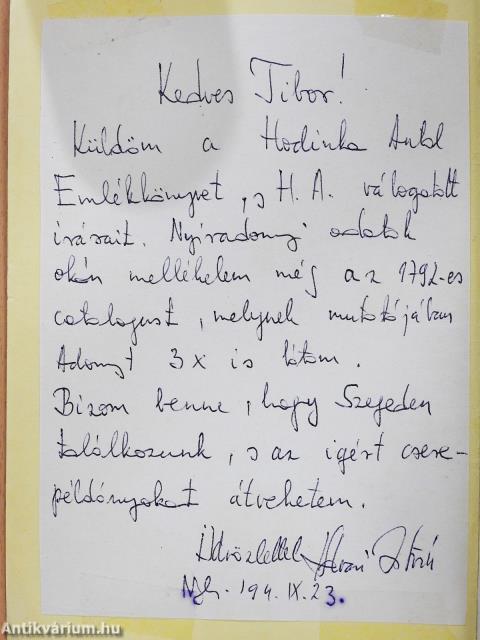 Kedves Tibor!
Küldöm a Hodinka Antal
Emlékkönyvet, s H. A. válogatott
írásait. Nyíradonyi adatok
okán mellékelem még az 1792-es
catalogust, melynek mutatójában
Adonyt 3x is látom.
Bízom benne, hogy Szegeden
találkozunk, s az igért csere-
példányokat átvehetem.
Üdvözlettel
Nyh. 194. IX. 23.
Antikvárium.hu